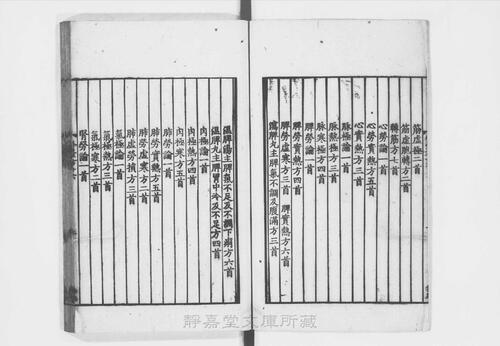 筋虛極二首
筋虛極轉方二首
轉筋方七首
心勞論一首
心勞實熱方五首
心實熱方三首
脉極論一首
脉熱極方三首
脉寒極方四首
脾勞論一首
脾勞實熱方四首 脾實熱方六首
脾勞虛寒方三首
溫脾丸主脾氣不調及腹滿方三首
溫脾湯主脾氣不足及不調下痢方六首
溫脾丸主脾胃中冷及不足方四首
肉極論一首
肉極熱方四首
肉極寒方五首
肺勞論一首
肺勞實熱方五首
肺勞虛寒方二首
肺虛勞損方三首
氣極論一首
氣極熱方三首
氣極寒方二首
腎勞論一首
靜嘉堂文庫所藏